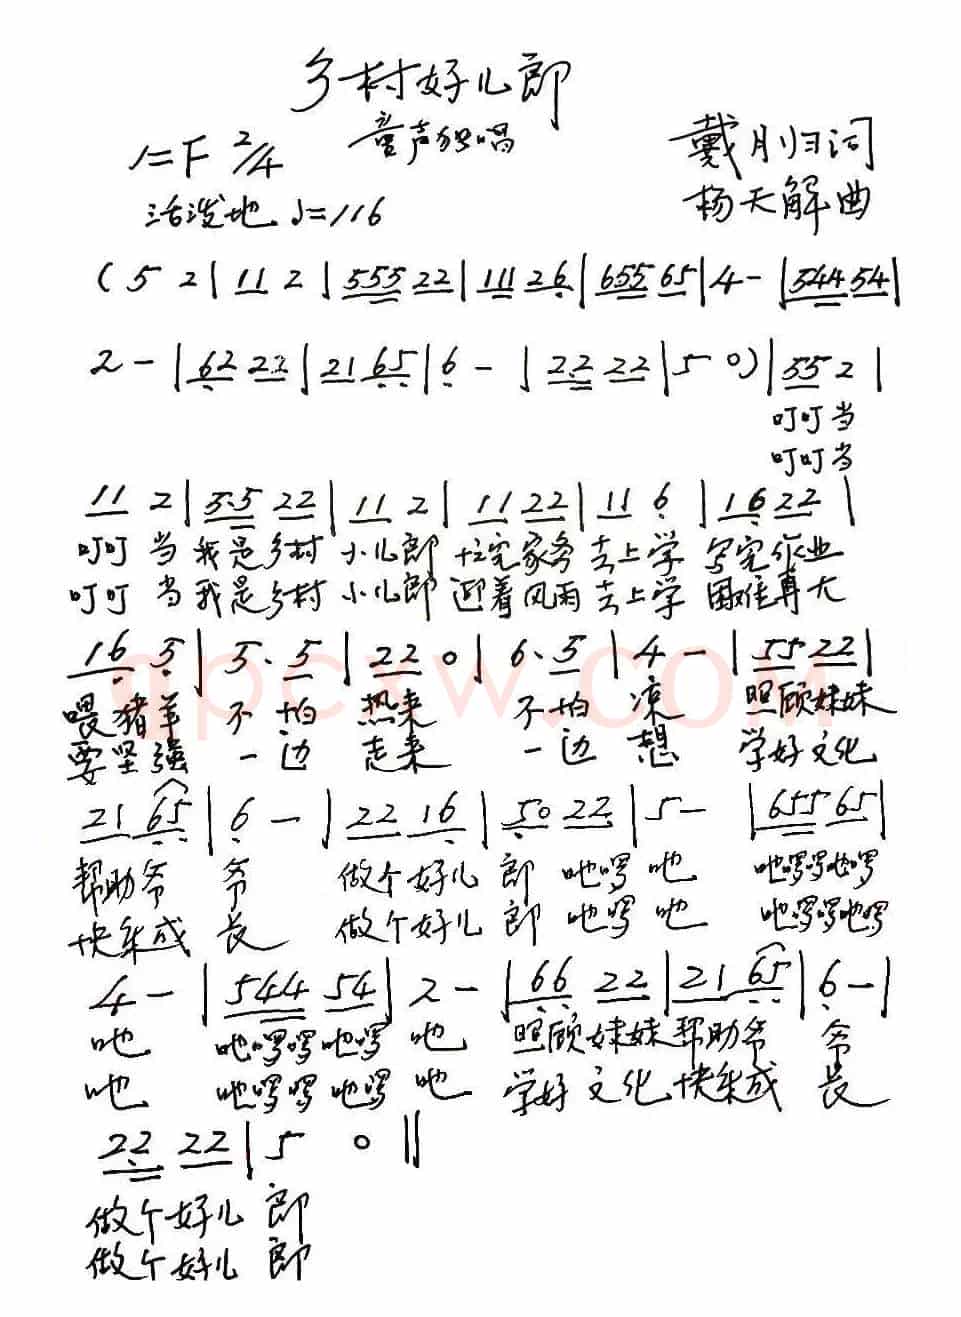 乡村好儿郎
童声独唱
1=F 2/4
戴月归词
活泼地 ♩=116
杨天解曲
( 5 2 | 11 2 | 555 22 | 111 26 | 655 65 | 4 - | 544 54 |
2 - | 62 22 | 21 65 | 6 - | 2.2 22 | 5 0 ) | 55 2 |
叮叮当
叮叮当
11 2 | 5.5 22 | 11 2 | 11 22 | 11 6 | 16 22 |
叮叮当 我是乡村 小儿郎 忙完家务 去上学 写完作业
叮叮当 我是乡村 小儿郎 迎着风雨 去上学 困难再大
16 5 | 5. 5 | 22 0 | 6. 5 | 4 - | 55 22 |
喂猪羊 不怕 热来 不怕 凉 照顾妹妹
要坚强 一边 走来 一边 想 学好文化
21 65 | 6 - | 22 16 | 50 22 | 5 - | 655 65 |
帮助爷 爷 做个好儿 郎 吔啰 吔 吔啰啰吔啰
快快成 长 做个好儿 郎 吔啰 吔 吔啰啰吔啰
4 - | 544 54 | 2 - | 66 22 | 21 65 | 6 - |
吔 吔啰啰吔啰 吔 照顾妹妹 帮助爷 爷
吔 吔啰啰吔啰 吔 学好文化 快快成 长
2.2 22 | 5 0 ||
做个好儿 郎
做个好儿 郎
qpcxw.com